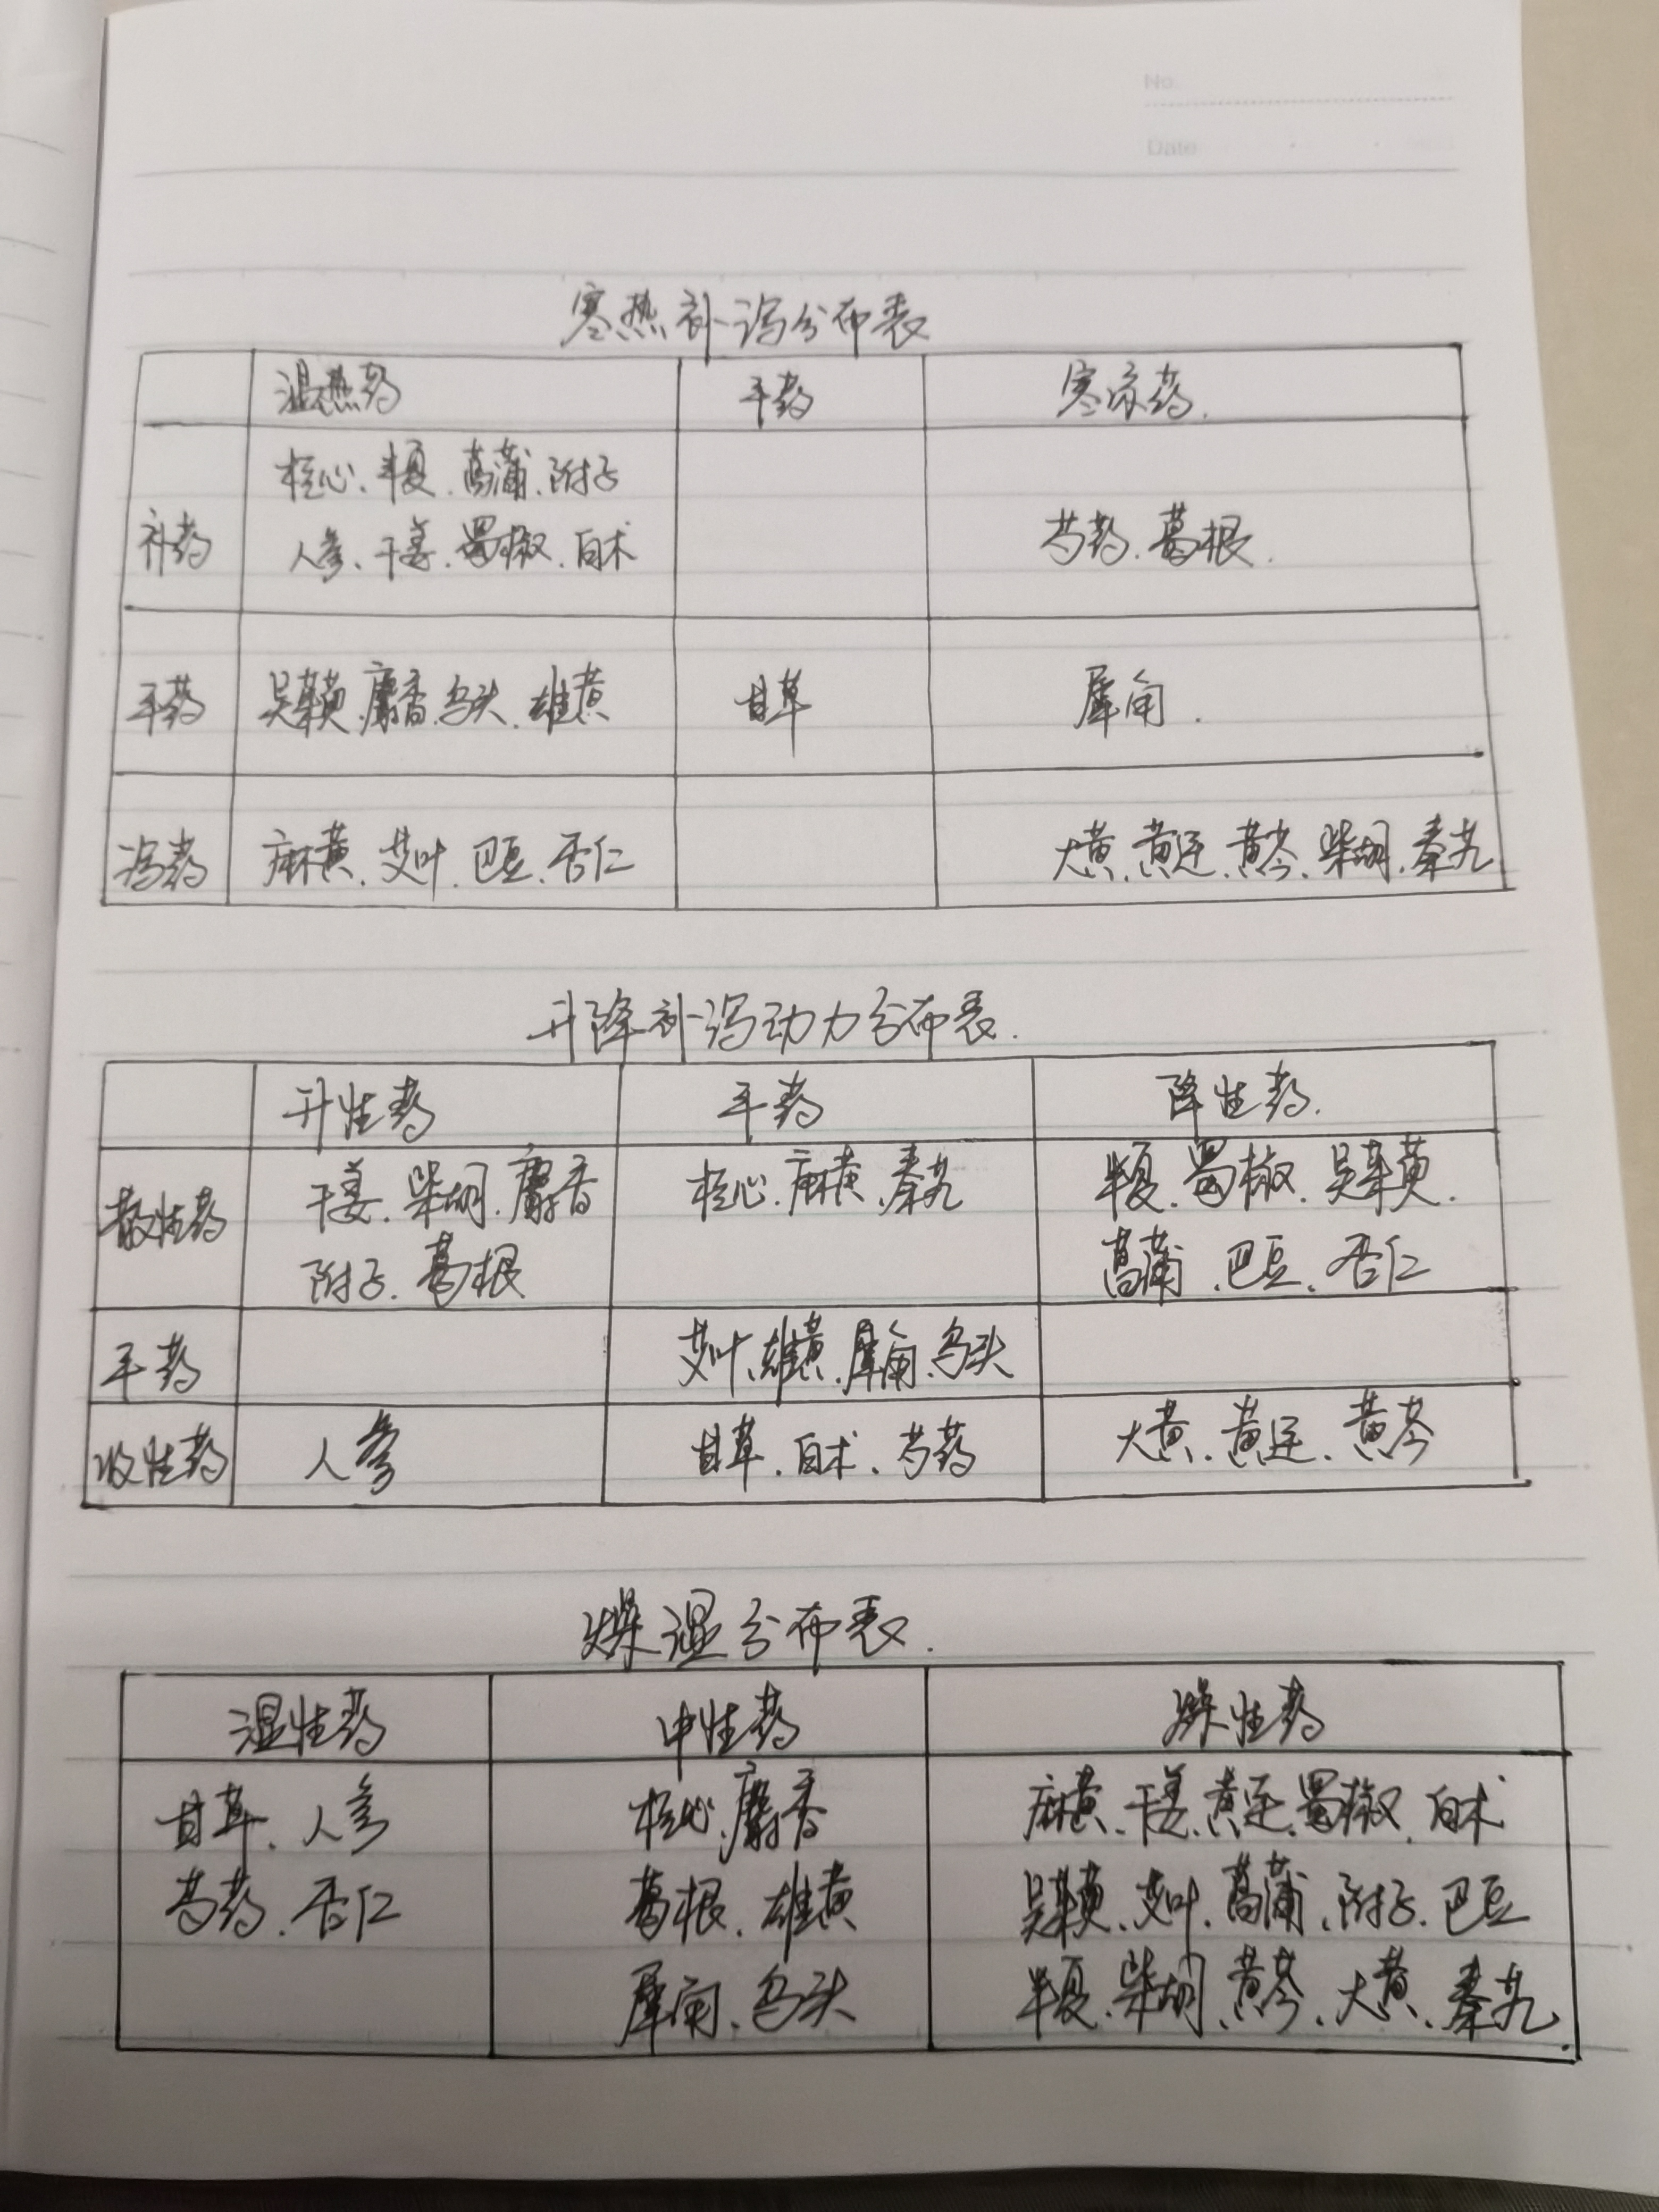 No.
Date
寒热补泻分布表
温热药 平药 寒凉药.
桂心、半夏.菖蒲.附子
人参、干姜.蜀椒.白术
补药 芍药.葛根.
平药 吴茱萸.麝香.乌头.雄黄 甘草 犀角.
泻药 麻黄.艾叶.巴豆.杏仁 大黄.黄连.黄芩.柴胡.秦艽
升降补泻动力分布表.
升性药 平药 降性药.
散性药 干姜.柴胡.麝香 桂心.麻黄.秦艽 半夏.蜀椒.吴茱萸.
附子.葛根 菖蒲.巴豆.杏仁
平药 艾叶.雄黄.犀角.乌头
收性药 人参 甘草.白术.芍药 大黄.黄连.黄芩
燥湿分布表.
湿性药 中性药 燥性药
甘草.人参 桂心.麝香 麻黄.干姜.黄连.蜀椒.白术
芍药.杏仁 葛根.雄黄 吴茱萸.艾叶.菖蒲.附子.巴豆
犀角.乌头 半夏.柴胡.黄芩.大黄.秦艽.